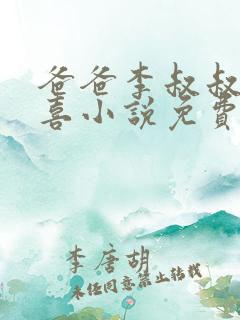 爸爸李叔叔
喜小说免費
李唐胡
未经同意禁止转载